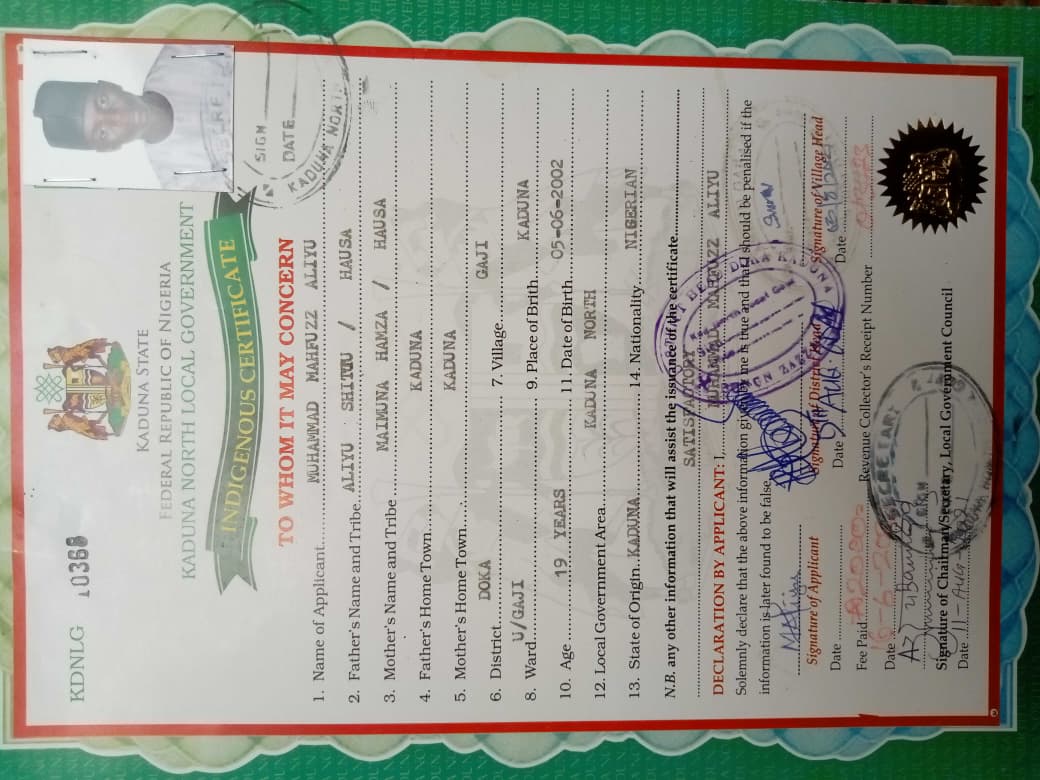 KDNLG 10368
KADUNA STATE
FEDERAL REPUBLIC OF NIGERIA
KADUNA NORTH LOCAL GOVERNMENT
INDIGENOUS CERTIFICATE
TO WHOM IT MAY CONCERN
SIGN
DATE
KADUNA NORTH
1. Name of Applicant MUHAMMAD MAHFUZZ ALIYU
2. Father's Name and Tribe ALIYU SHITTU / HAUSA
3. Mother's Name and Tribe MAIMUNA HAMZA / HAUSA
4. Father's Home Town KADUNA
5. Mother's Home Town KADUNA
6. District DOKA 7. Village GAJI
8. Ward U/GAJI 9. Place of Brith KADUNA
10. Age 19 YEARS 11. Date of Birth 05-06-2002
12. Local Government Area KADUNA NORTH
13. State of Origin KADUNA 14. Nationality NIGERIAN
N.B. any other information that will assist the issuance of the certificate
SATISFACTORY
DECLARATION BY APPLICANT: I MUHAMMAD MAHFUZZ ALIYU
Solemnly declare that the above information given by me is true and that I should be penalised if the
information is later found to be false.
Signature of Applicant Signature of District Head Signature of Village Head
Date Date Date
Fee Paid Revenue Collector's Receipt Number
Date
SECRETARY
Signature of Chairman/Secretary, Local Government Council
Date 11-AUG 2021